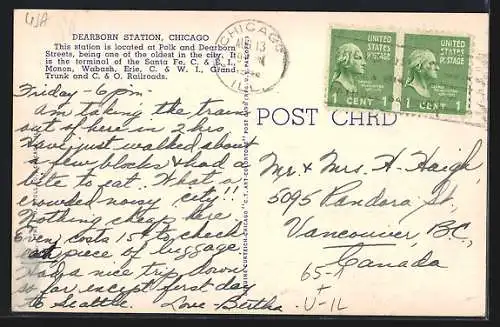 USA
DEARBORN STATION, CHICAGO
This station is located at Polk and Dearborn
Streets, being one of the oldest in the city. It
is the terminal of the Santa Fe, C. & E. I.,
Monon, Wabash, Erie, C. & W. I., Grand
Trunk and C. & O. Railroads.
CHICAGO
13
ILL.
UNITED STATES
POSTAGE
1 CENT 1
UNITED STATES
POSTAGE
1 CENT 1
POST CARD
Friday - 6 pm.
Am taking the train
out of here in 2 hrs
Have just walked about
a few blocks & had a
bite to eat. What a
crowded noisy city!!
Nothing cheap here.
Even costs 15¢ to check
each piece of luggage.
Had a nice trip down
so far except first day
to Seattle. Love - Bertha
CURTEICH-CHICAGO "C.T. ART-COLORTONE" POST CARD (REG. U.S. PAT. OFF.)
Mr & Mrs. H. Haigh,
5095 Pandora St.
Vancouver, BC.,
Canada
65-1
+
U-IL